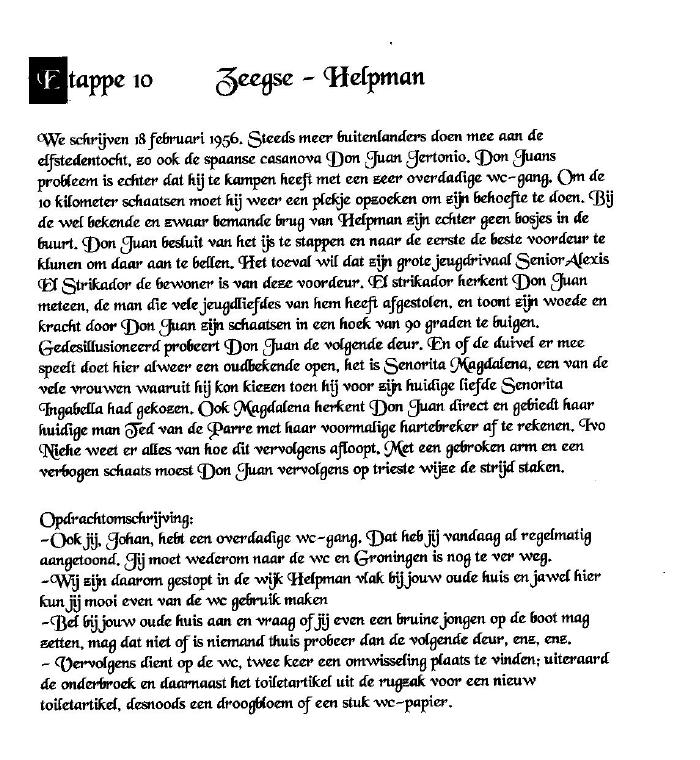 Etappe 10 Zeegse - Helpman
We schrijven 18 februari 1956. Steeds meer buitenlanders doen mee aan de
elfstedentocht, zo ook de spaanse casanova Don Juan Jertonio. Don Juans
probleem is echter dat hij te kampen heeft met een zeer overdadige wc-gang. Om de
10 kilometer schaatsen moet hij weer een plekje opzoeken om zijn behoefte te doen. Bij
de wel bekende en zwaar bemande brug van Helpman zijn echter geen bosjes in de
buurt. Don Juan besluit van het ijs te stappen en naar de eerste de beste voordeur te
klunen om daar aan te bellen. Het toeval wil dat zijn grote jeugdrivaal Senior Alexis
El Strikador de bewoner is van deze voordeur. El strikador herkent Don Juan
meteen, de man die vele jeugdliefdes van hem heeft afgestolen, en toont zijn woede en
kracht door Don Juan zijn schaatsen in een hoek van 90 graden te buigen.
Gedesillusioneerd probeert Don Juan de volgende deur. En of de duivel er mee
speelt doet hier alweer een oudbekende open, het is Senorita Magdalena, een van de
vele vrouwen waaruit hij kon kiezen toen hij voor zijn huidige liefde Senorita
Ingabella had gekozen. Ook Magdalena herkent Don Juan direct en gebiedt haar
huidige man Ted van de Parre met haar voormalige hartebreker af te rekenen. Ivo
Niehe weet er alles van hoe dit vervolgens afloopt. Met een gebroken arm en een
verbogen schaats moest Don Juan vervolgens op trieste wijze de strijd staken.
Opdrachtomschrijving:
-Ook jij, Johan, hebt een overdadige wc-gang. Dat heb jij vandaag al regelmatig
aangetoond. Jij moet wederom naar de wc en Groningen is nog te ver weg.
-Wij zijn daarom gestopt in de wijk Helpman vlak bij jouw oude huis en jawel hier
kun jij mooi even van de wc gebruik maken
-Bel bij jouw oude huis aan en vraag of jij even een bruine jongen op de boot mag
zetten, mag dat niet of is niemand thuis probeer dan de volgende deur, enz, enz.
- Vervolgens dient op de wc, twee keer een omwisseling plaats te vinden; uiteraard
de onderbroek en daarnaast het toiletartikel uit de rugzak voor een nieuw
toiletartikel, desnoods een droogbloem of een stuk wc-papier.